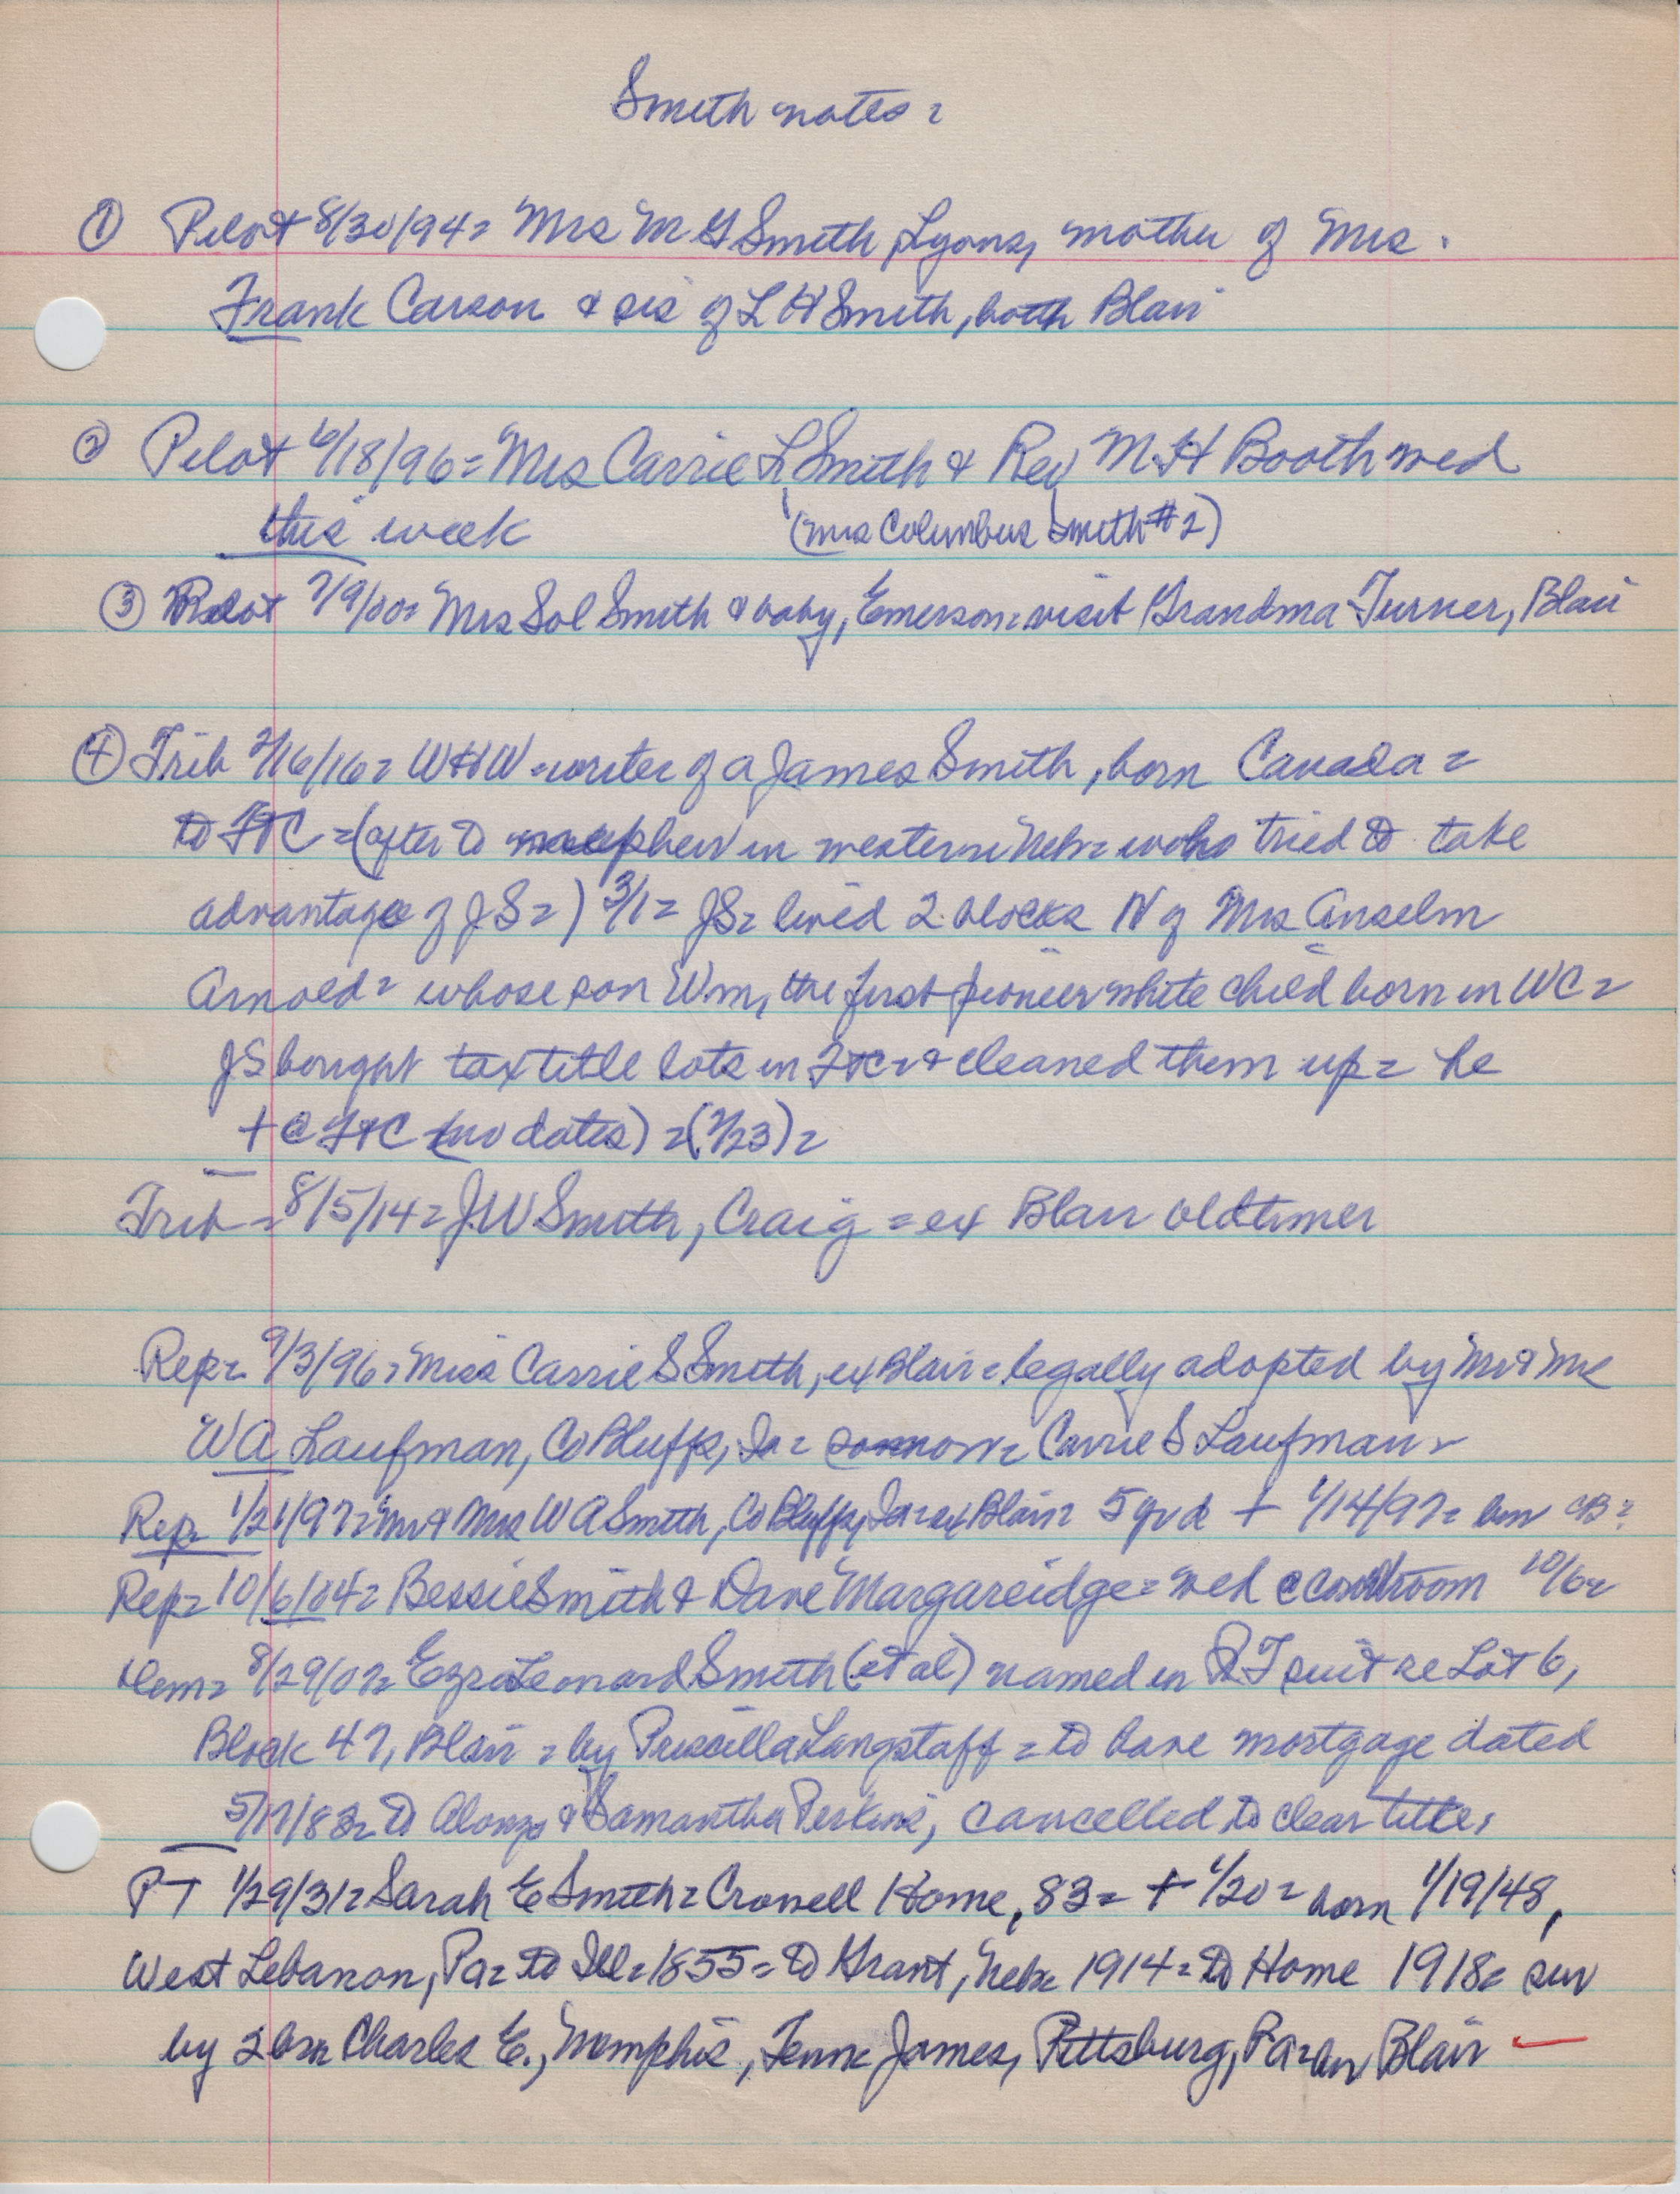 Smith notes =
① Pilot 8/30/94 = Mrs M G Smith, Lyons, mother of Mrs.
Frank Carson & sis of L H Smith, both Blair
② Pilot 6/18/96 = Mrs Carrie L Smith & Rev M H Booth wed
this week (Mrs Columbus Smith #2)
③ Pilot 7/9/00 = Mrs Sol Smith & baby, Emerson = visit Grandma Turner, Blair
④ Trib 2/16/16 = W H W = writer of a James Smith, born Canada =
to FtC = (after to nephew in western Neb = who tried to take
advantage of J S =) 3/1 = JS = lived 2 blocks N of Mrs Anselm
Arnold = whose son Wm, the first pioneer white child born in WC =
JS bought tax title lots in FtC = & cleaned them up = he
+ @ FtC (no dates) = (7/23) =
Trib = 8/5/14 = J W Smith, Craig = ex Blair oldtimer
Rep = 9/3/96 = Miss Carrie S Smith, ex Blair = legally adopted by Mr & Mrs
W A Laufman, Co Bluffs, Ia = now = Carrie S Laufman =
Rep = 1/21/97 = Mr & Mrs W A Smith, Co Bluffs, Ia = ex Blair = 5 yr d + 1/14/97 = bur CB =
Rep = 10/6/04 = Bessie Smith & Dave Margareidge = wed @ courtroom 10/6 =
Dem = 8/29/07 = Ezra Leonard Smith (et al) named in Q T suit re Lot 6,
Block 47, Blair = by Priscilla Langstaff = to have mortgage dated
5/17/83 = to Alonzo & Samantha Perkins, cancelled to clear title,
P T 1/29/31 = Sarah E Smith = Crowell Home, 83 = + 1/20 = born 1/19/48,
West Lebanon, Pa = to Ill = 1855 = to Grant, Neb = 1914 = to Home 1918 = sur
by 2 bro Charles E., Memphis, Tenn James, Pittsburg, Pa = bur Blair